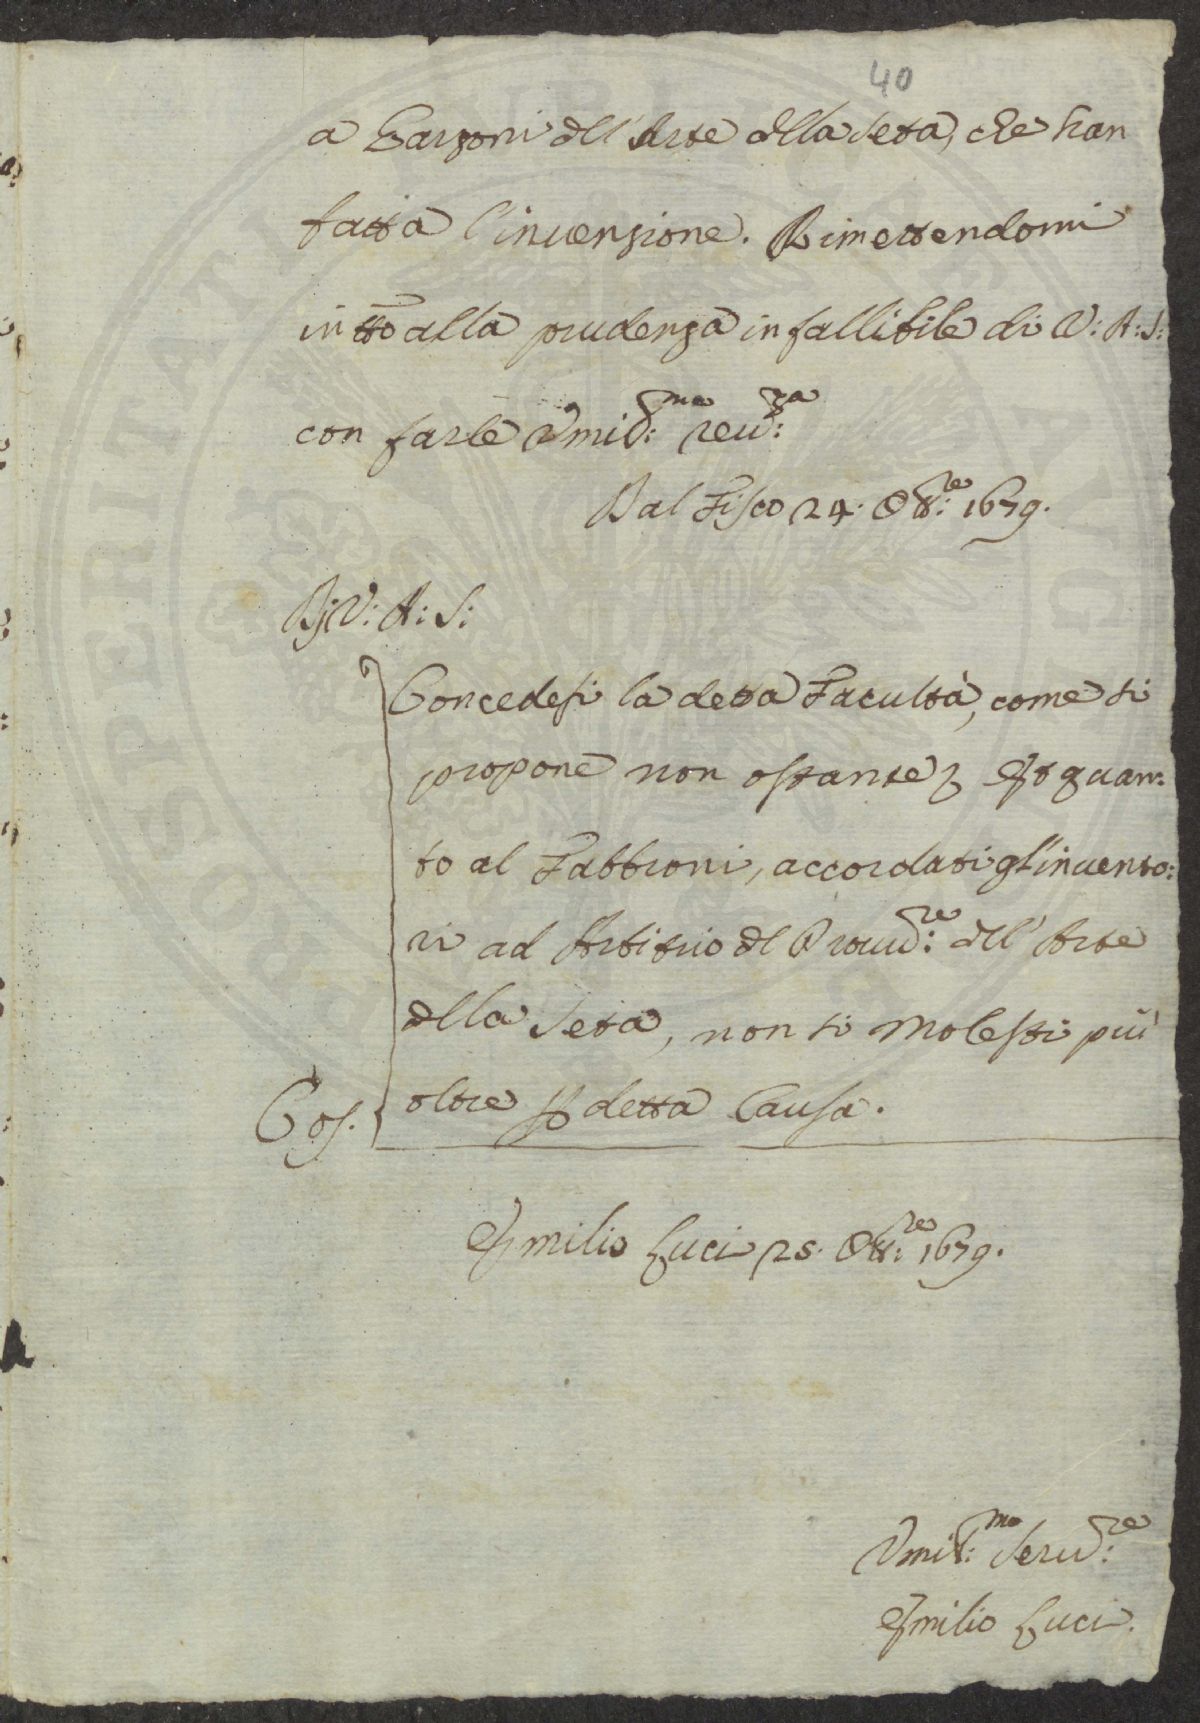 40
a Garzoni dell'Arte della Seta, che han
fatta l'invenzione. Rimettendomi
in tto alla prudenza infallibile di V: A: S:
con farle Vmil:ma reu:za
Dal Fisco 24. 8bre: 1679.
V: A: S:
Concedesi la detta Facultà, come si
propone non ostante, et quan:
to al Fabbroni, accordati gl'inuento:
ri ad Arbitrio del Prouu:re dell'Arte
della Seta, non si molesti più
oltre p detta Causa.
Cos.
Emilio Luci 25. 8bre: 1679.
Vmil:mo Seru:re
Emilio Luci.